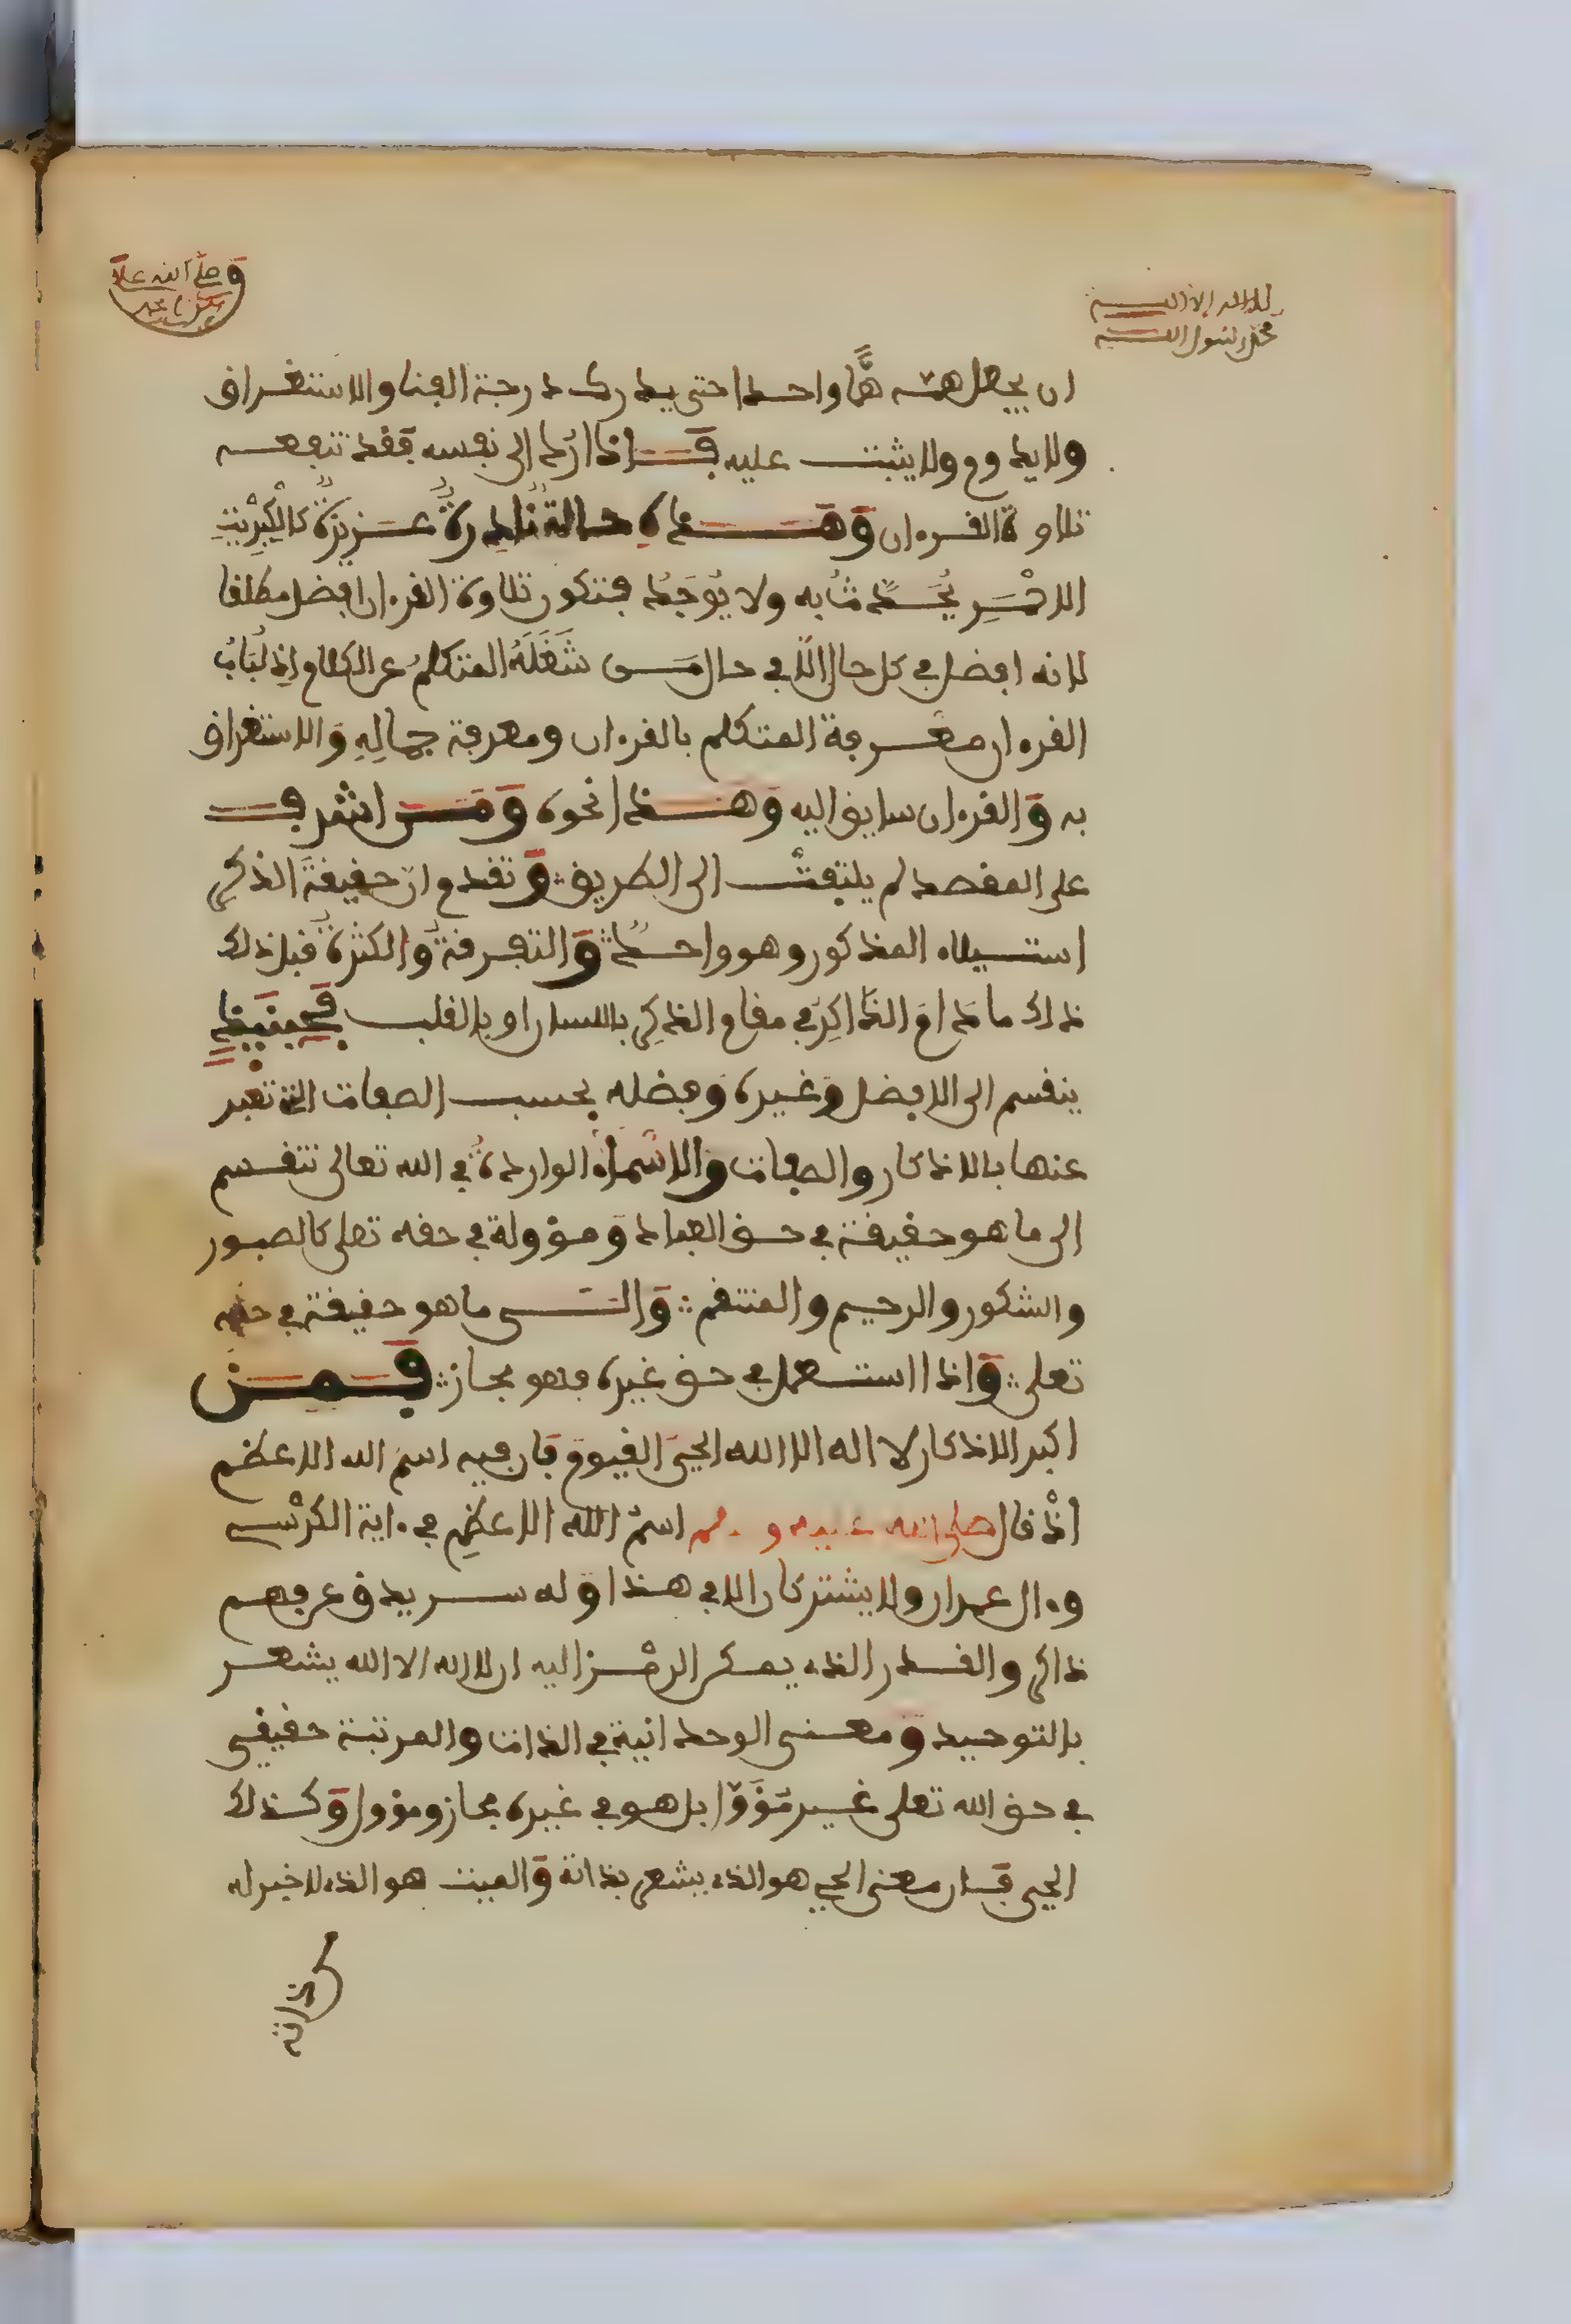 لا اله الا الله
محمد رسول الله
وصلى الله على
سيدنا محمد
ان يجعل همه همًّا واحدا حتى يدرك درجة الفنا والاستغراق
ولا يدوم ولا يثبت عليه فاذا رُد الى نفسه فقد تنفعه
تلاوة القرءان وهذه حالة نادرة عزيزة كالكبريت
الاحمر يُحدَّث به ولا يوجد فتكون تلاوة القرءان افضل مطلقا
لانه افضل في كل حال الّا في حال من شَغَلَهُ المتكلم عن الكلام اذ لُبَابُ
القرءان معرفة المتكلم بالقرءان ومعرفة جمالِهِ والاستغراق
به والقرءان سايق اليه وهذا نحوه ومن اشرف
على المقصد لم يلتفت الى الطريق وتقدم ان حقيقة الذكر
استيلاه المذكور وهو واحد والتفرقة والكثرة قبل ذلك
ذلك ما دام الذاكر في مقام الذكر باللسان او بالقلب فحينيذ
ينقسم الى الافضل وغيره وفضله بحسب الصفات التي تعبر
عنها بالاذكار والصفات والاسماء الواردة في الله تعالى تنقسم
الى ما هو حقيقة في حق العباد ومؤولة في حقه تعلى كالصبور
والشكور والرحيم والمنتقم والى ما هو حقيقة في حقه
تعلى واذا استعمل في حق غيره فهو مجاز فمن
اكبر الاذكار لا اله الا الله الحي القيوم فان فيه اسم الله الاعظم
اذ قال صلى الله عليه و سلم اسم الله الاعظم في ءاية الكرسي
وءال عمران ولا يشتركان الا في هذا وله سر يدق عن فهم
ذاكر والقدر الذي يمكن الرمز اليه ان لا اله الا الله يشعر
بالتوحيد ومعنى الوحدانية في الذات والمرتبة حقيقي
في حق الله تعلى غير مؤول بل هو في غيره مجاز ومؤول وكذلك
الحي فان معنى الحي هو الذي يشعر بذاته والميت هو الذي لا خبر له
من ذاته